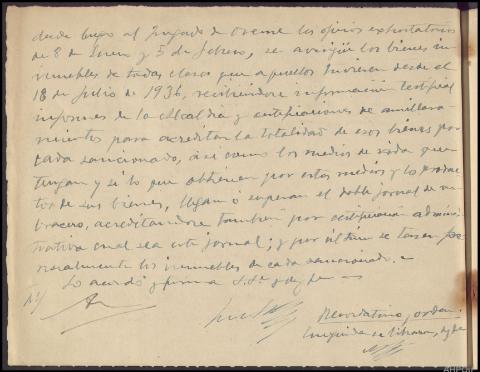 desde luego al Juzgado de Orense los oficios exhortatorios
de 8 de Enero y 5 de febrero, se averigüe los bienes in-
muebles de todas clases que aquellos tuvieren desde el
18 de Julio de 1936, recibiendose información testifical
informes de la Alcaldia y certificaciones de amillara-
mientos para acreditar la totalidad de esos bienes por
cada sancionado, asi como los medios de vida que
tengan y si lo que obtienen por estos medios y los produc-
tos de sus bienes, llegan ó superan el doble jornal de un
bracero, acreditandose también por certificación adminis-
trativa cual sea este jornal; y por último se tasen pe-
ricialmente los inmuebles de cada sancionado.=
Lo acordó y firma S.Sª y doy fe —
Recordatorio, orden.
Enseguida se libraron, doy fe
AHPOur